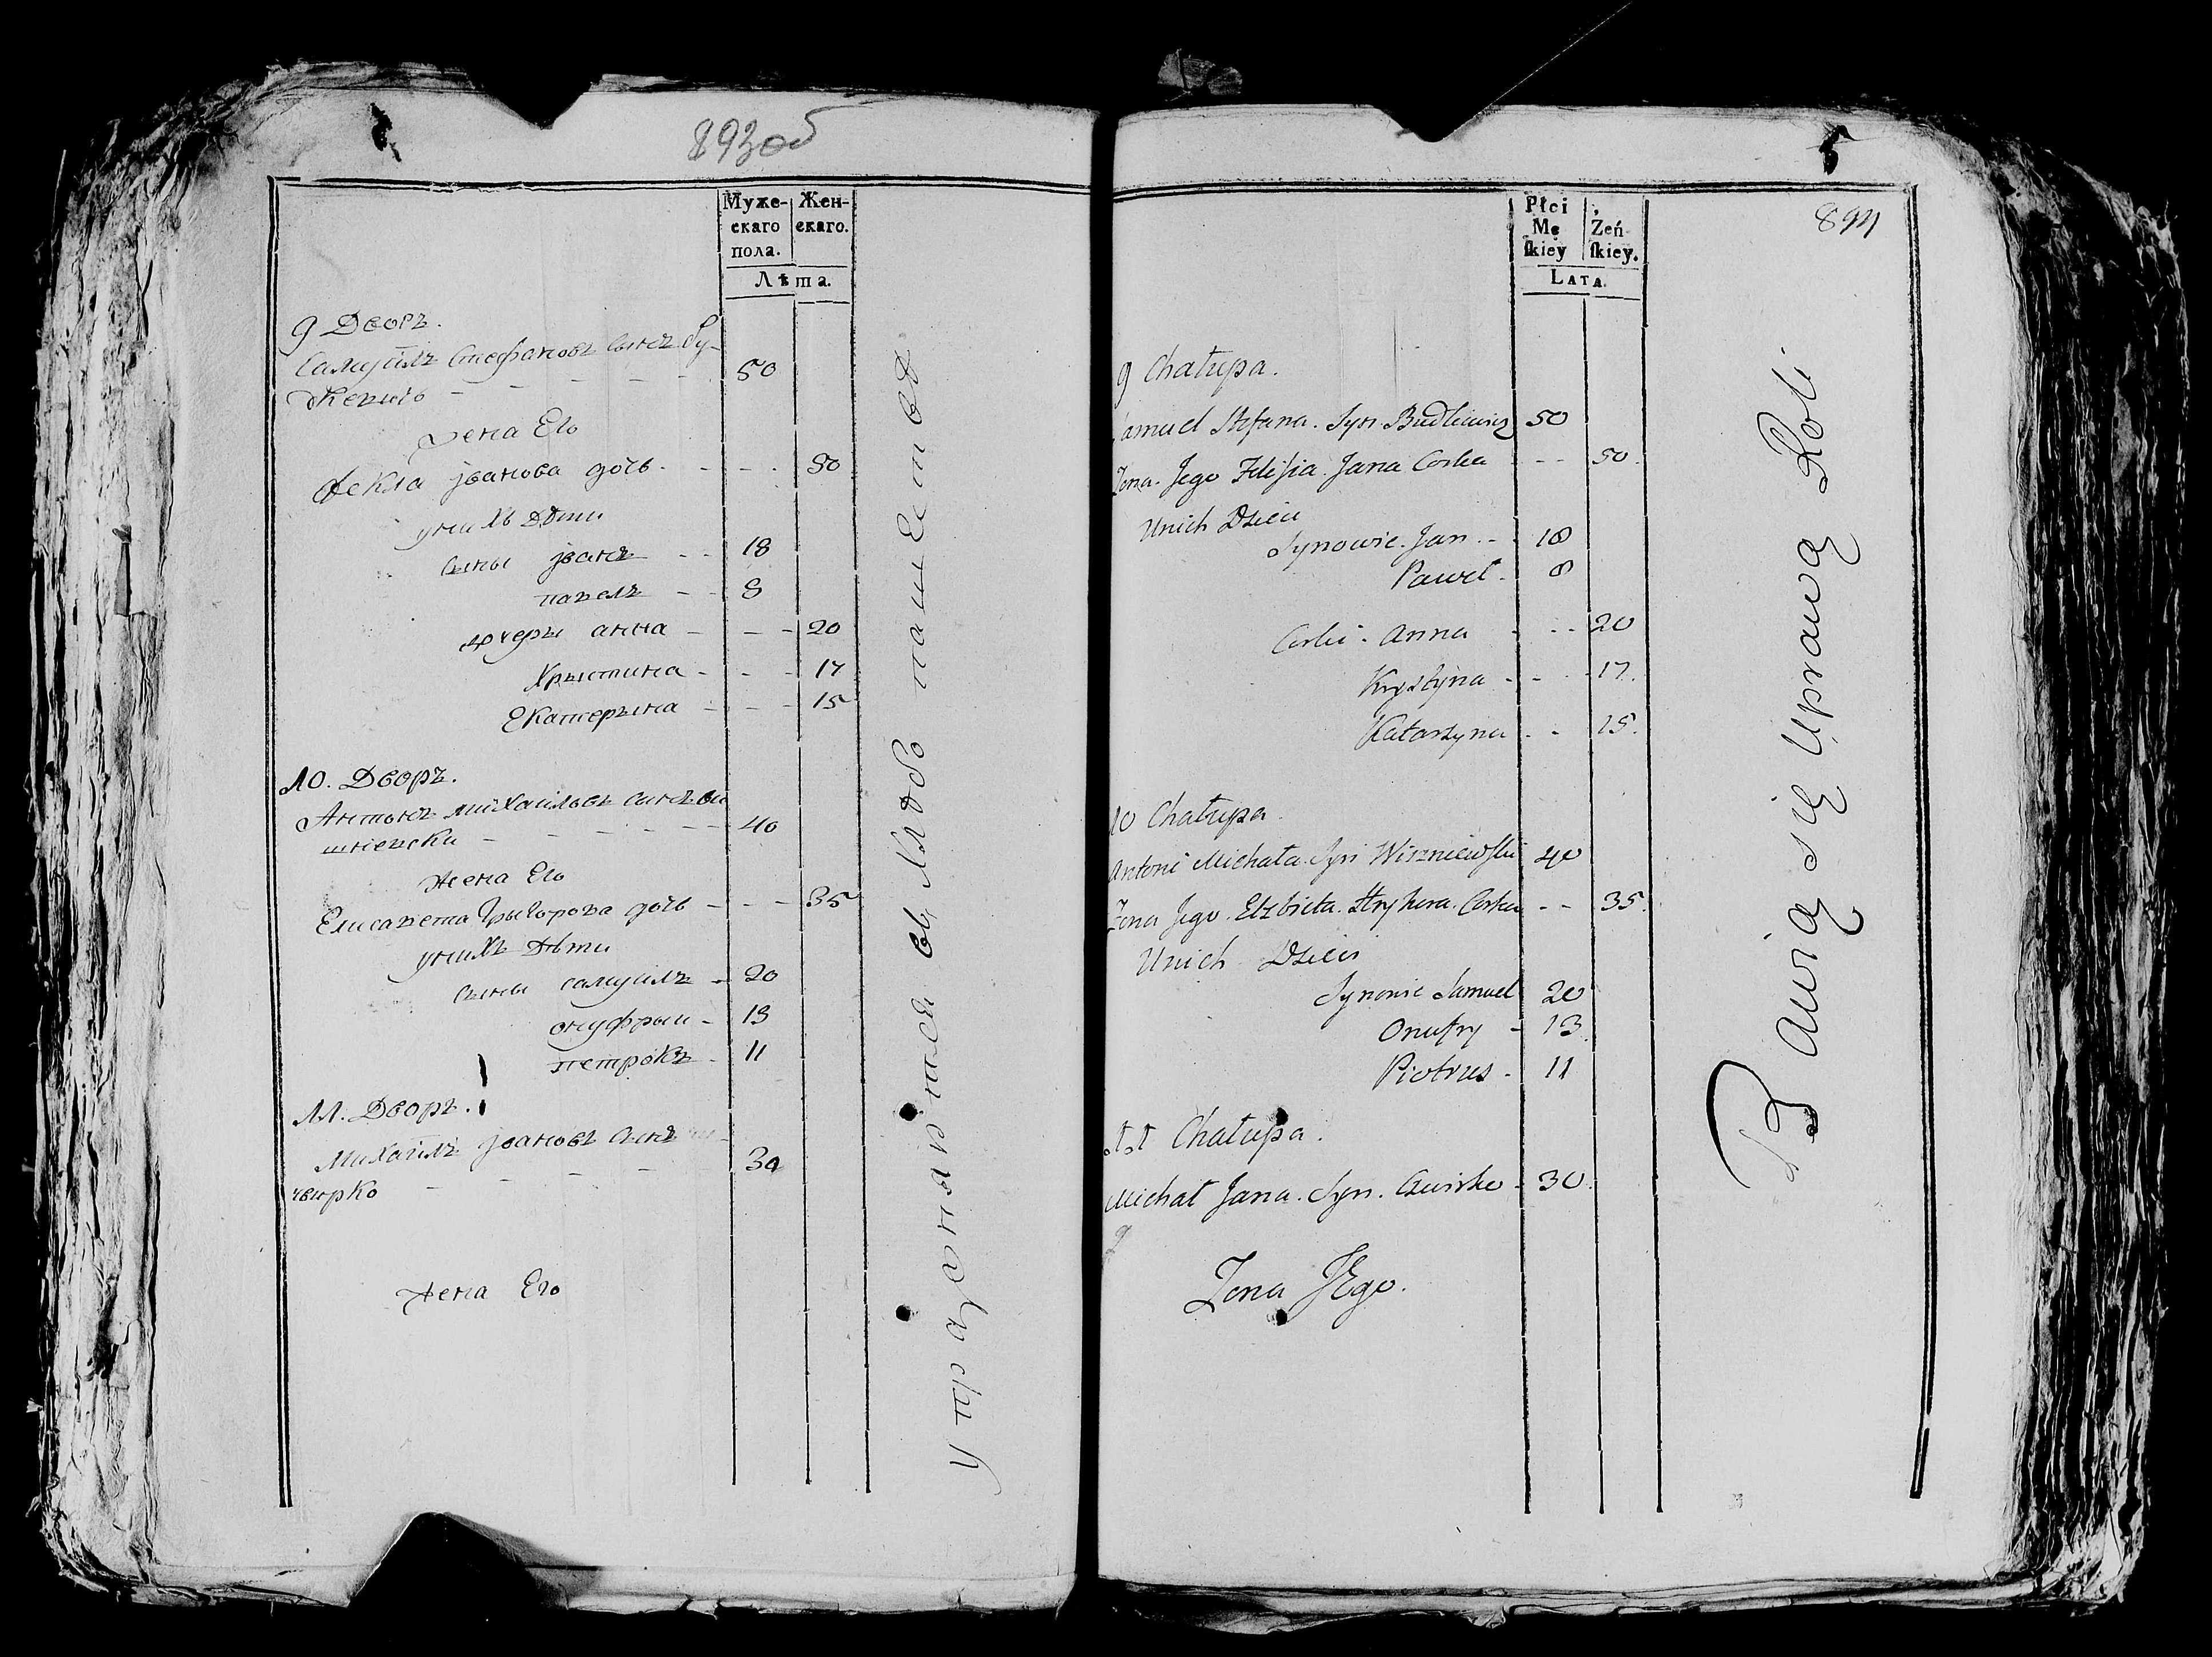 893 об
Муже-
скаго
пола.
Жен-
скаго.
Лѣта.
9 Дворъ.
Самуйлъ Стефановъ сынъ Бу-
50
Жена Его
Фекла јванова дочь - - - 50
у них Дѣти
сыны јванъ - - 18
павелъ - - 8
дочеры анна - - - 20
Хрыстина - - - 17
Екатерына - - - 15
10. Дворъ.
Антонъ михайловъ сынъ ви
шніевски - - - - - 40
жена Его
Елисавета Грыгорова дочь - - - 35
у нихъ Дѣти
сыны самуилъ - 20
онуфрыи - 13
петрокъ - 11
11. Дворъ.
Михаилъ јвановъ сынъ
чвирко - - - - 30
Жена Его
упражняются въ
5
894
Płci
Mę
ſkiey
Żeń
ſkiey.
LATA.
9 Chałupa.
Samuel Stefana. Syn Budkiewicz 50
Żona Jego Felisia Jana Corka - - 50.
Unich Dzieci
Synowie. Jan - - 18
Paweł - 8
Corki - Anna - - - 20
Krystyna - - - 17.
Katarzyna - - 15.
10 Chałupa.
Antoni Michała Syn Wiszniewſki 40
Żona Jego. Elzbieta. Hryhora. Corka - - 35.
Unich Dzieci
Synowie Samuel 20
Onufry - 13
Piotrus - 11
11 Chałupa.
Michał Jana. Syn. Cwirko - 30.
Żona JEgo.
Bawią się Uprawą Roli